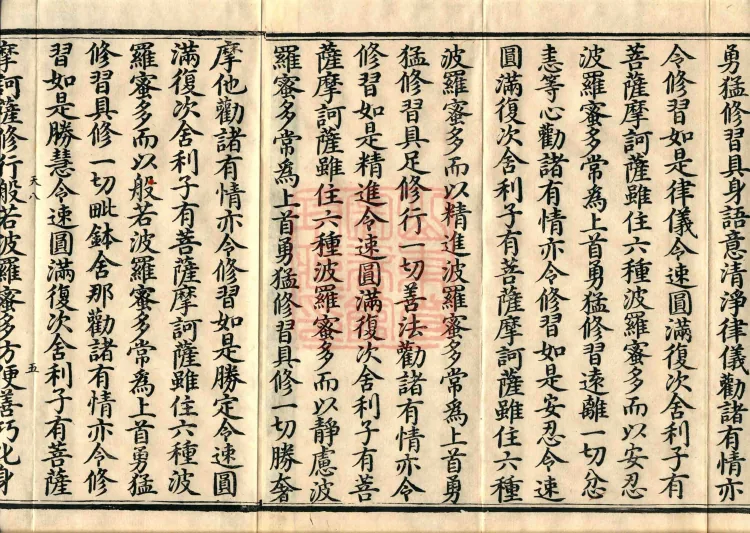 勇猛修習具身語意清淨律儀勸諸有情亦
令修習如是律儀令速圓滿復次舍利子有
菩薩摩訶薩雖住六種波羅蜜多而以安忍
波羅蜜多常爲上首勇猛修習遠離一切忿
恚等心勸諸有情亦令修習如是安忍令速
圓滿復次舍利子有菩薩摩訶薩雖住六種
波羅蜜多而以精進波羅蜜多常爲上首勇
猛修習具足修行一切善法勸諸有情亦令
修習如是精進令速圓滿復次舍利子有菩
薩摩訶薩雖住六種波羅蜜多而以靜慮波
羅蜜多常爲上首勇猛修習具修一切勝奢
摩他勸諸有情亦令修習如是勝定令速圓
滿復次舍利子有菩薩摩訶薩雖住六種波
羅蜜多而以般若波羅蜜多常爲上首勇猛
修習具修一切毗鉢舍那勸諸有情亦令修
習如是勝慧令速圓滿復次舍利子有菩薩
天八 五
摩訶薩修行般若波羅蜜多方便善巧化身